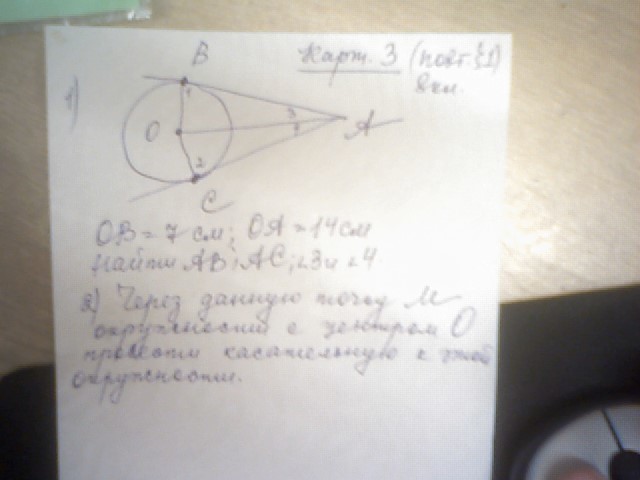 Карт. 3 (повт. §1)
8 кл.
1)
B
1
O
3
4
A
2
C
OB = 7 см; OA = 14 см
Найти AB; AC; ∠3 и ∠4
2) Через данную точку M
окружности с центром O
провести касательную к этой
окружности.